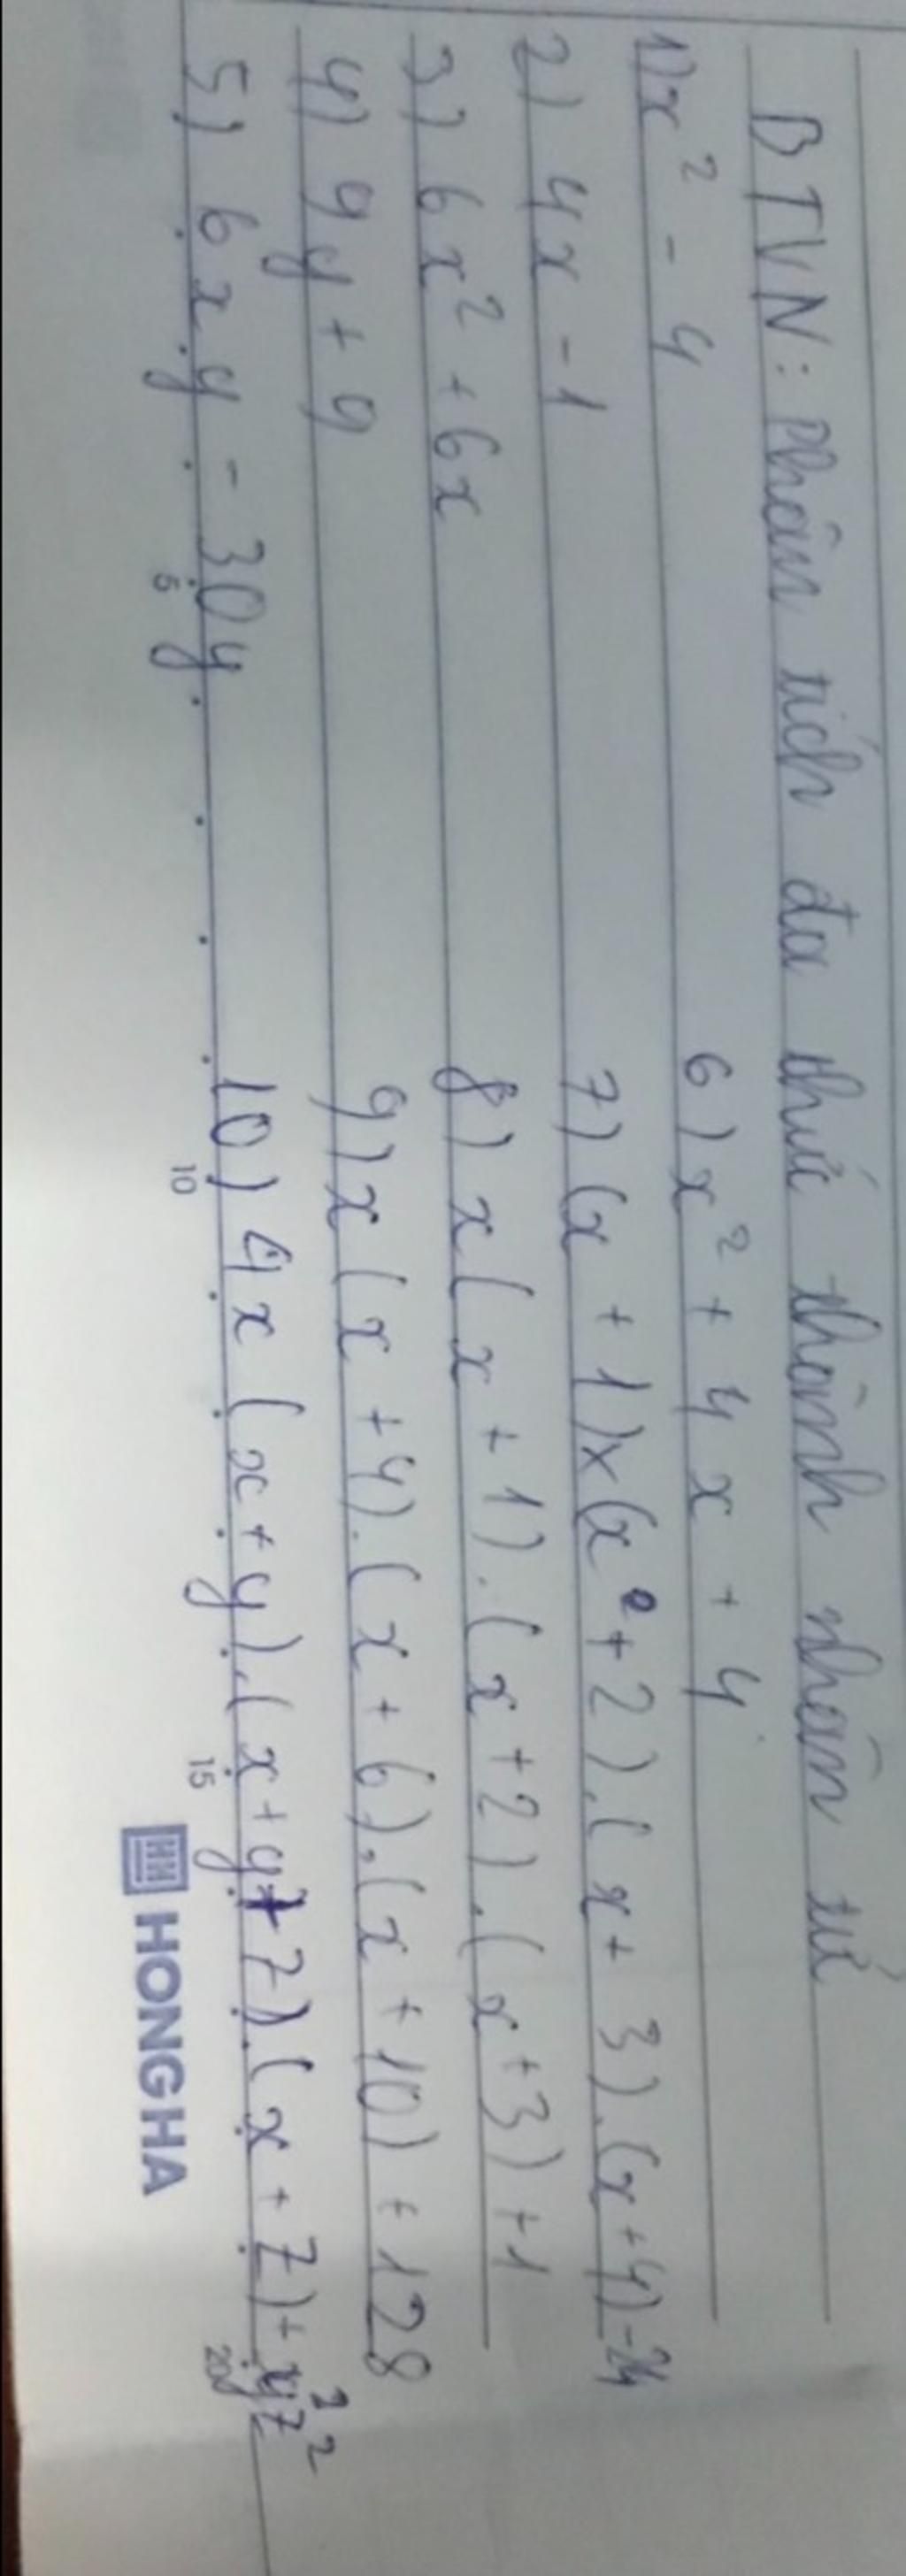 BTVN: Phân tích đa thức thành nhân tử
1) x² - 4
6) x² + 4x + 4
2) 4x - 1
7) (x + 1) x (x + 2).(x + 3).(x + 4) - 24
3) 6x² + 6x
8) x(x + 1).(x + 2).(x + 3) + 1
4) 9y + 9
9) x(x + 4).(x + 6).(x + 10) + 128
5) 6xy - 30y
10) 4x(x + y).(x + y + z).(x + z) + y²z²
5 10 15 20
HONG HA